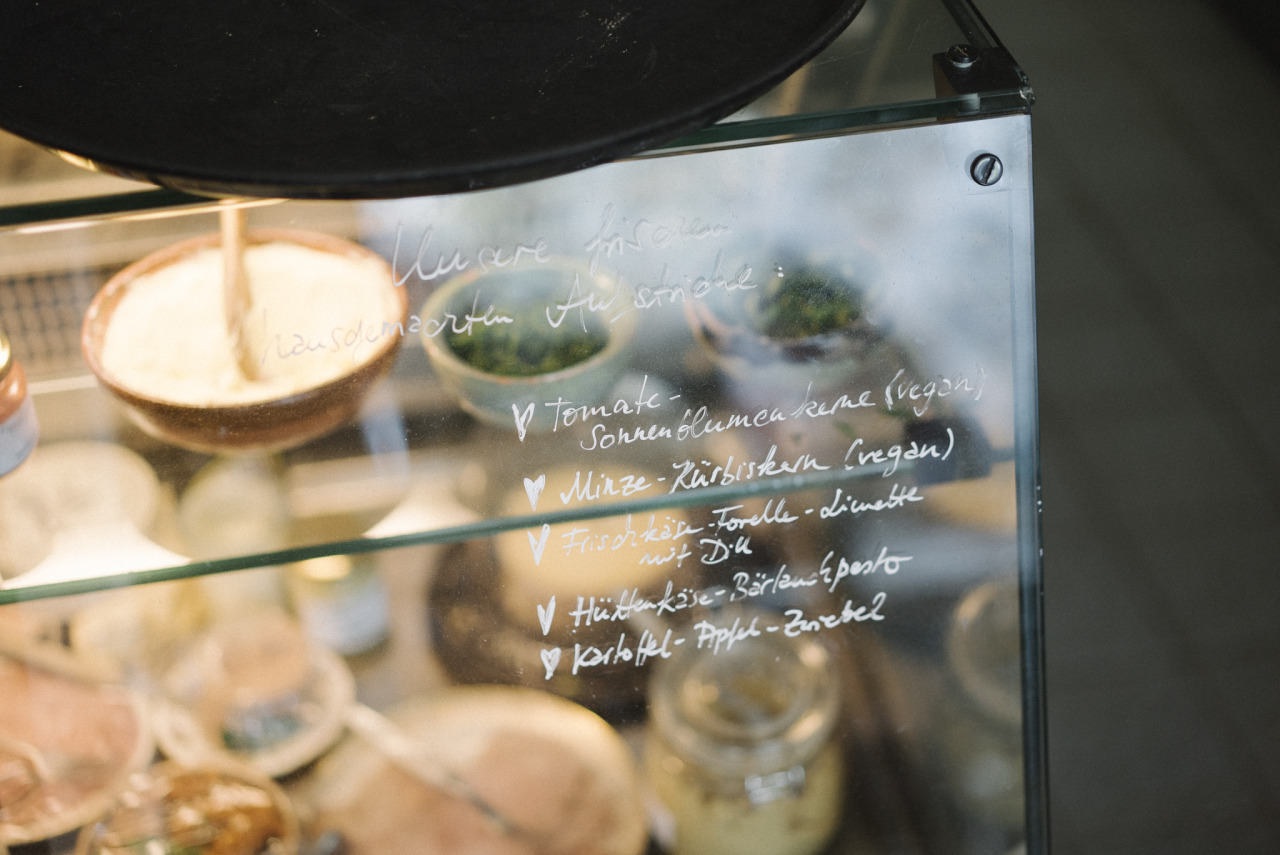 Unsere frischen
hausgemachten Aufstriche:
Tomate-
Sonnenblumenkerne (vegan)
Minze-Kürbiskern (vegan)
Frischkäse-Forelle-Limette
mit Dill
Hüttenkäse-Bärlauchpesto
Kartoffel-Apfel-Zwiebel